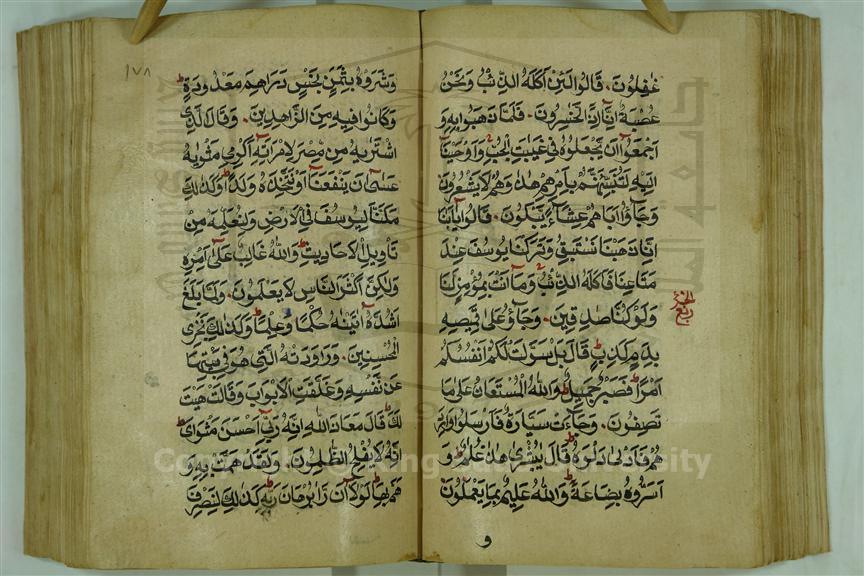 غٰفِلُونَ۔ قَالُوا لَئِنْ اَكَلَهُ الذِّئْبُ وَنَحْنُ
عُصْبَةٌ اِنَّا اِذًا لَّخٰسِرُونَ۔ فَلَمَّا ذَهَبُوا بِهٖ وَ
اَجْمَعُوٓا اَنْ يَّجْعَلُوهُ فِى غَيٰبَتِ الْجُبِّ وَاَوْحَيْنَا
اِلَيْهِ لَتُنَبِّئَنَّهُمْ بِاَمْرِهِمْ هٰذَا وَهُمْ لَا يَشْعُرُونَ
وَجَآؤُٓا اَبَاهُمْ عِشَآءً يَّبْكُونَ۔ قَالُوا يٰٓاَبَانَآ
اِنَّا ذَهَبْنَا نَسْتَبِقُ وَتَرَكْنَا يُوسُفَ عِنْدَ
مَتَاعِنَا فَاَكَلَهُ الذِّئْبُ وَمَآ اَنْتَ بِمُؤْمِنٍ لَّنَا
وَلَوْ كُنَّا صٰدِقِينَ۔ وَجَآؤُ عَلٰى قَمِيصِهٖ
بِدَمٍ كَذِبٍ قَالَ بَلْ سَوَّلَتْ لَكُمْ اَنْفُسُكُمْ
اَمْرًا فَصَبْرٌ جَمِيلٌ وَاللّٰهُ الْمُسْتَعَانُ عَلٰى مَا
تَصِفُونَ۔ وَجَآءَتْ سَيَّارَةٌ فَاَرْسَلُوا وَارِدَ
هُمْ فَاَدْلٰى دَلْوَهٗ قَالَ يٰبُشْرٰى هٰذَا غُلٰمٌ وَ
اَسَرُّوهُ بِضَاعَةً وَاللّٰهُ عَلِيمٌ بِمَا يَعْمَلُونَ
و
١٧٨
وَشَرَوْهُ بِثَمَنٍ بَخْسٍ دَرَاهِمَ مَعْدُودَةٍ
وَكَانُوا فِيهِ مِنَ الزَّاهِدِينَ۔ وَقَالَ الَّذِى
اشْتَرٰيهُ مِنْ مِصْرَ لِامْرَاَتِهٖٓ اَكْرِمِى مَثْوٰيهُ
عَسٰٓى اَنْ يَنْفَعَنَآ اَوْ نَتَّخِذَهٗ وَلَدًا وَكَذٰلِكَ
مَكَّنَّا لِيُوسُفَ فِى الْاَرْضِ وَلِنُعَلِّمَهٗ مِنْ
تَاْوِيلِ الْاَحَادِيثِ وَاللّٰهُ غَالِبٌ عَلٰٓى اَمْرِهٖ
وَلٰكِنَّ اَكْثَرَ النَّاسِ لَا يَعْلَمُونَ۔ وَلَمَّا بَلَغَ
اَشُدَّهٗٓ اٰتَيْنٰهُ حُكْمًا وَعِلْمًا وَكَذٰلِكَ نَجْزِى
الْمُحْسِنِينَ۔ وَرَاوَدَتْهُ الَّتِى هُوَ فِى بَيْتِهَا
عَنْ نَفْسِهٖ وَغَلَّقَتِ الْاَبْوَابَ وَقَالَتْ هَيْتَ
لَكَ قَالَ مَعَاذَ اللّٰهِ اِنَّهٗ رَبِّىٓ اَحْسَنَ مَثْوَاىَ
اِنَّهٗ لَا يُفْلِحُ الظّٰلِمُونَ۔ وَلَقَدْ هَمَّتْ بِهٖ وَ
هَمَّ بِهَا لَوْلَآ اَنْ رَاٰ بُرْهَانَ رَبِّهٖ كَذٰلِكَ لِنَصْرِفَ